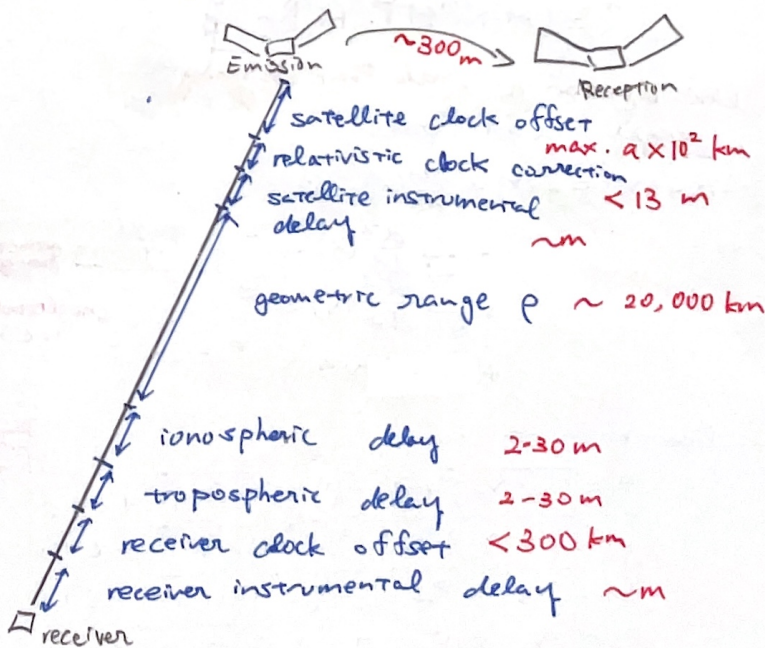 ~300m
Emission
Reception
satellite clock offset
max. a × 10² km
relativistic clock correction
satellite instrumental < 13 m
delay
~m
geometric range ρ ~ 20,000 km
ionospheric delay 2-30 m
tropospheric delay 2-30 m
receiver clock offset < 300 km
receiver instrumental delay ~m
receiver